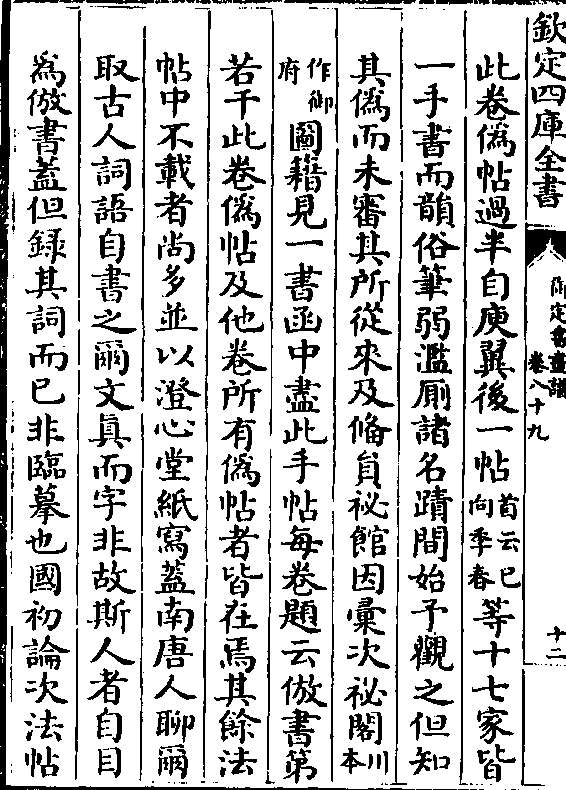 欽定四庫全書
御定書畫譜
卷八十九
十二
此卷偽帖過半自庾翼後一帖首云已向季春等十七家皆
一手書而韻俗筆弱濫厠諸名蹟間始予觀之但知
其偽而未審其所從來及備員祕館因彚次祕閣川本
作御府圖籍見一書函中盡此手帖每卷題云倣書第
若干此卷偽帖及他卷所有偽帖者皆在焉其餘法
帖中不載者尚多並以澄心堂紙寫蓋南唐人聊爾
取古人詞語自書之爾文真而字非故斯人者自目
為倣書蓋但録其詞而已非臨摹也國初論次法帖